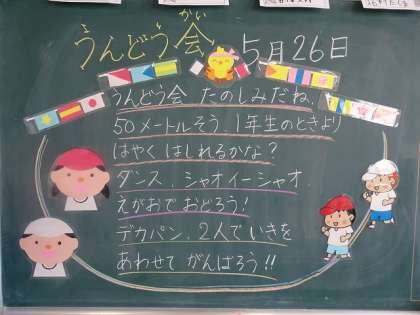 うんどう会 5月26日
かい
うんどう会 たのしみだね、
50メートルそう、1年生のときより
はやく はしれるかな?
ダンス、シャオイーシャオ、
えがおで おどろう!
デカパン、2人で いきを
あわせて がんばろう!!